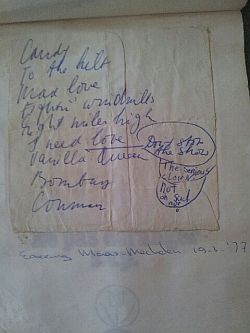 Candy
To the hilt
Mad love
Fightin' windmills
Eight miles high
I need love
Vanilla Queen
Bombay
Conman
Don't stop
the show
The serious
not
Earring Maas-Mechelen 19.3.'77